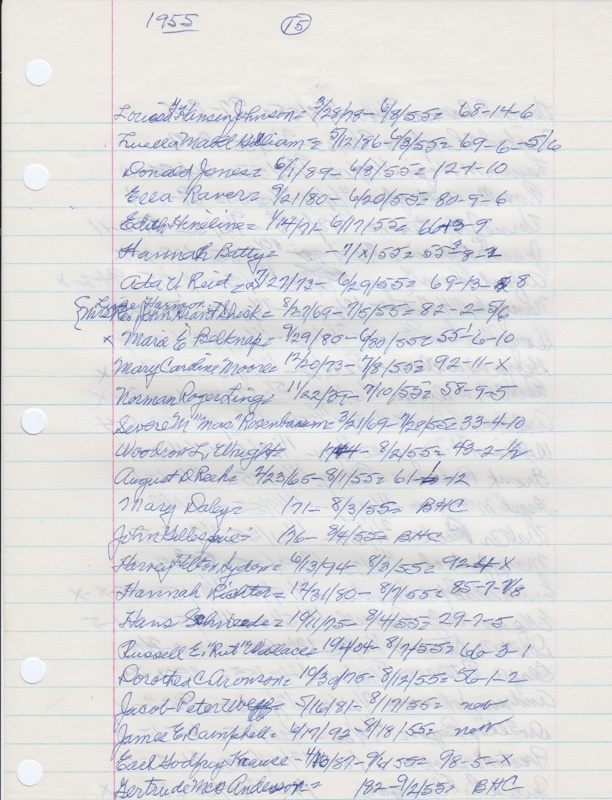 1955 15
Louisa Hansine Johnson = 3/28/78 - 6/8/55 = 68-14-6
Luella Mabel Gilliam = 5/12/86 - 6/3/55 = 69-6-5/6
Donald Jones = 6/1/89 - 6/8/55 = 12-1-10
Ella Raver = 9/21/80 - 6/20/55 = 80-9-6
Edith Hineline = 1/14/71 - 6/17/55 = 66-13-9
Hannah Betty = - 7/x/55 = 55-8-
Ada V. Reid = 7/27/73 - 6/29/55 = 69-13-8
{ Harmon
Mrs John Grant Shick = 8/27/69 - 7/5/55 = 82-2-5/6
x Marie E. Belknap = 9/29/80 - 6/30/55 = 55-6-10
Mary Caroline Moore = 12/20/73 - 7/8/55 = 92-11-X
Norman Roger Ling = 11/22/ - 7/10/55 = 58-9-5
Severe M "Mac" Rosenbaum = 3/21/69 - 7/28/55 = 33-4-10
Woodrow L. Wright - 8/2/55 = 43-2-1/2
August D Reeh = 2/23/65 - 8/1/55 = 61- -12
Mary Daley = 171 - 8/3/55 = BHC
John Gillespie = 176 - 8/4/55 = BHC
Harvey Elton Lydon = 6/13/94 - 8/3/55 = 92-4-X
Hannah Richter = 12/31/80 - 8/7/55 = 85-7-7/8
Hans = 10/11/75 - 8/4/55 = 29-7-5
Russell E. "Rut" Wallace = 10/4/04 - 8/7/55 = 66-3-1
Dorothea C. Aronson = 10/30/75 - 8/12/55 = 56-1-2
Jacob Peter Wolff = 5/16/81 - 8/17/55 = now
James E. Campbell = 4/17/92 - 8/18/55 = now
Earl Godfrey Krause = /87 - 9/4/55 = 98-5-X
Gertrude Mae Anderson = 182 - 9/2/55 = BHC